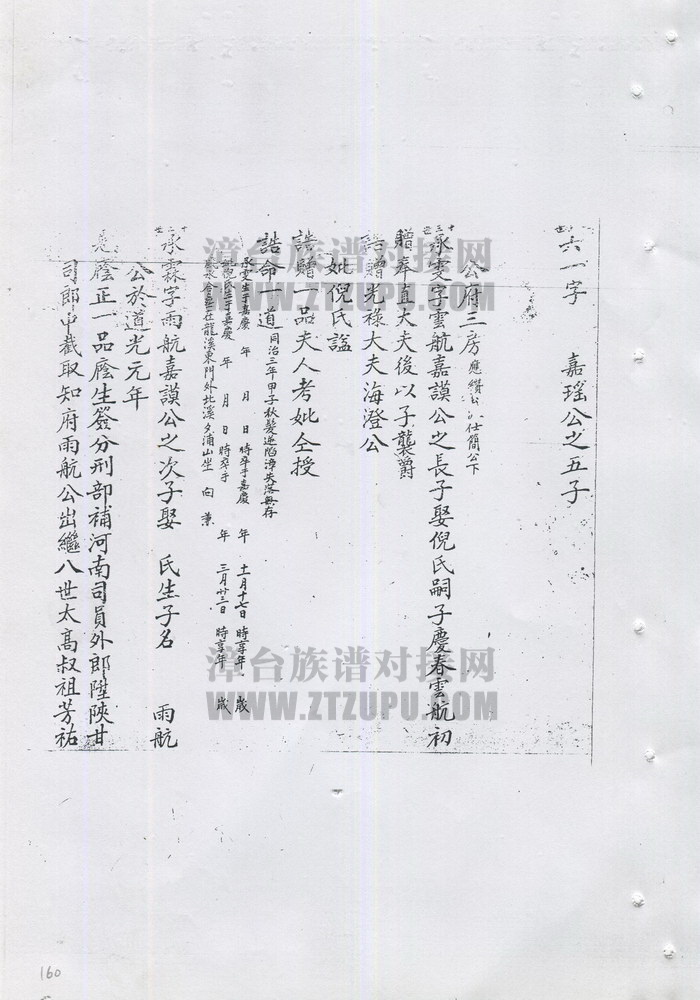 六一字 嘉瑤公之五子
公府三房 仕簡公下
承雯字雲航嘉謨公之長子娶倪氏嗣子慶春雲航初
贈奉直大夫後以子襲爵
誥贈光祿大夫海澄公
妣倪氏謚
誥贈一品夫人考妣仝授
誥命一道 同治三年甲子秋髮逆陷漳失落無存
承雯生于嘉慶 年 月 日 時卒于嘉慶 年 十一月十七日 時享年 歲
妣倪氏生于嘉慶 年 月 日 時卒于 年 三月廿三日 時享年 歲
在龍溪東門外北溪 浦山坐 向 兼
承霖字雨航嘉謨公之次子娶 氏生子名 雨航
公於道光元年
恩廕正一品廕生簽分刑部補河南司員外郎陞陝甘
司郎中截取知府雨航公出繼八世太高叔祖芳祐
漳台族谱对接网
WWW.ZTZUPU.COM
漳台族谱对接网
WWW.ZTZUPU.COM
160